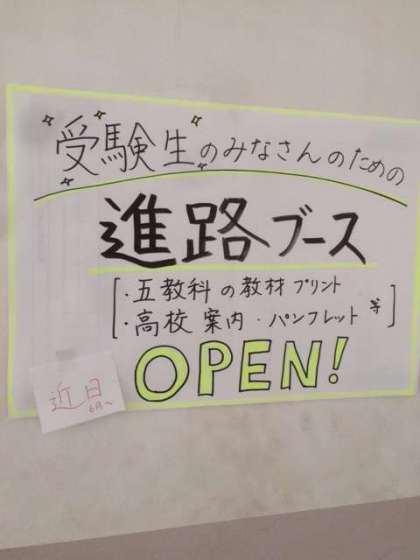 受験生のみなさんのための
進路ブース
・五教科の教材プリント
・高校案内・パンフレット等
近日
6月〜
OPEN!